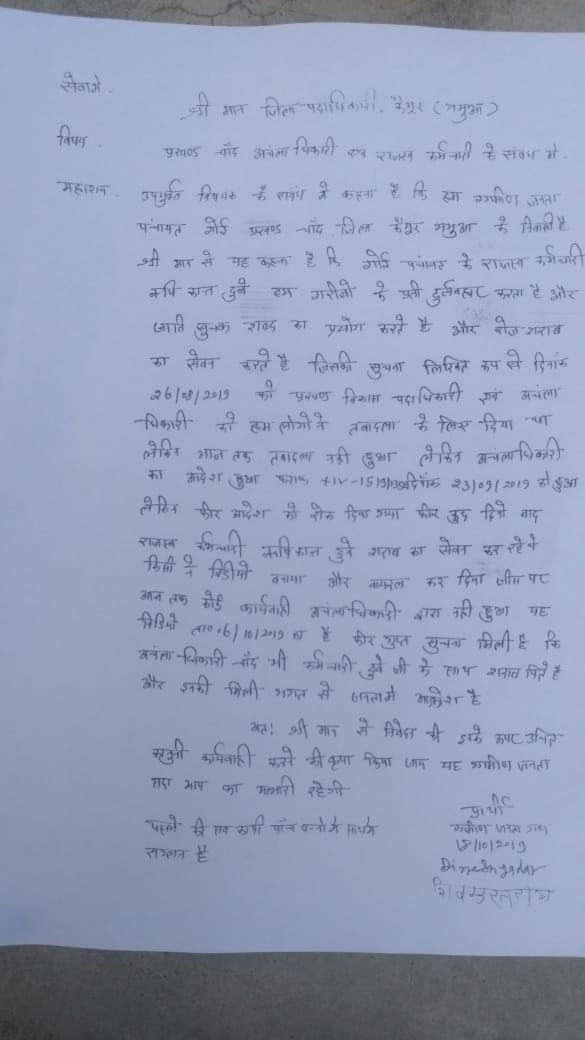 सेवामे.
श्री मान जिला पदाधिकारी, कैमुर (भभुआ)
विषय. प्रखण्ड चाँद अचंलाधिकारी एवं राजस्व कर्मचारी के संबंध मे.
महाशय. उपर्युक्त विषयक के संबंध मे कहना है कि हम ग्रामीण जनता
पंचायत गोई प्रखण्ड चाँद जिला कैमुर भभुआ के निवासी है
श्री मान से यह कहना है कि गोई पंचायत के राजस्व कर्मचारी
ऋषि कान्त दुबे हम गरीबो के प्रती करता है और
जाति सुचक शब्द का प्रयोग करते है और रोज शराब
का सेवन करते है जिसकी सुचना लिखित रूप से दिनांक
26/08/2019 को प्रखण्ड विकास पदाधिकारी एवं अचंला
धिकारी को हम लोगो ने तबादला के लिए दिया था
लेकिन आज तक तबादला नही हुआ लेकिन अचंलाधिकारी
का आदेश हुआ दिनांक 23/09/2019 को हुआ
लेकिन फीर आदेश को रोक दिया गया फीर कुछ दिनो बाद
राजस्व कर्मचारी ऋषिकान्त दुबे शराब का सेवन कर रहे थे
किसी ने विडीयो बनाया और वायरल कर दिया जीस पर
आज तक कोई कार्यवाही अचंलाधिकारी द्वारा नही हुआ यह
विडियो ता० 6/10/2019 का है फीर गुप्त सुचना मिली है कि
अचंलाधिकारी चाँद भी कर्मचारी दुबे जी के साथ शराब पिते है
और इनकी मिली भगत से जनता मे आक्रोश है
अतः श्री मान से निवेदन की इनके उपर उचित
कानुनी कार्यवाही करने की कृपा किया जाय यह ग्रामीण जनता
सदा आप का आभारी रहेगी
प्रार्थी
पहले की सब कापी पाँच पन्नो मे
ग्रामीण जनता गण
सलग्न है
/10/2019
Dinesh yadav